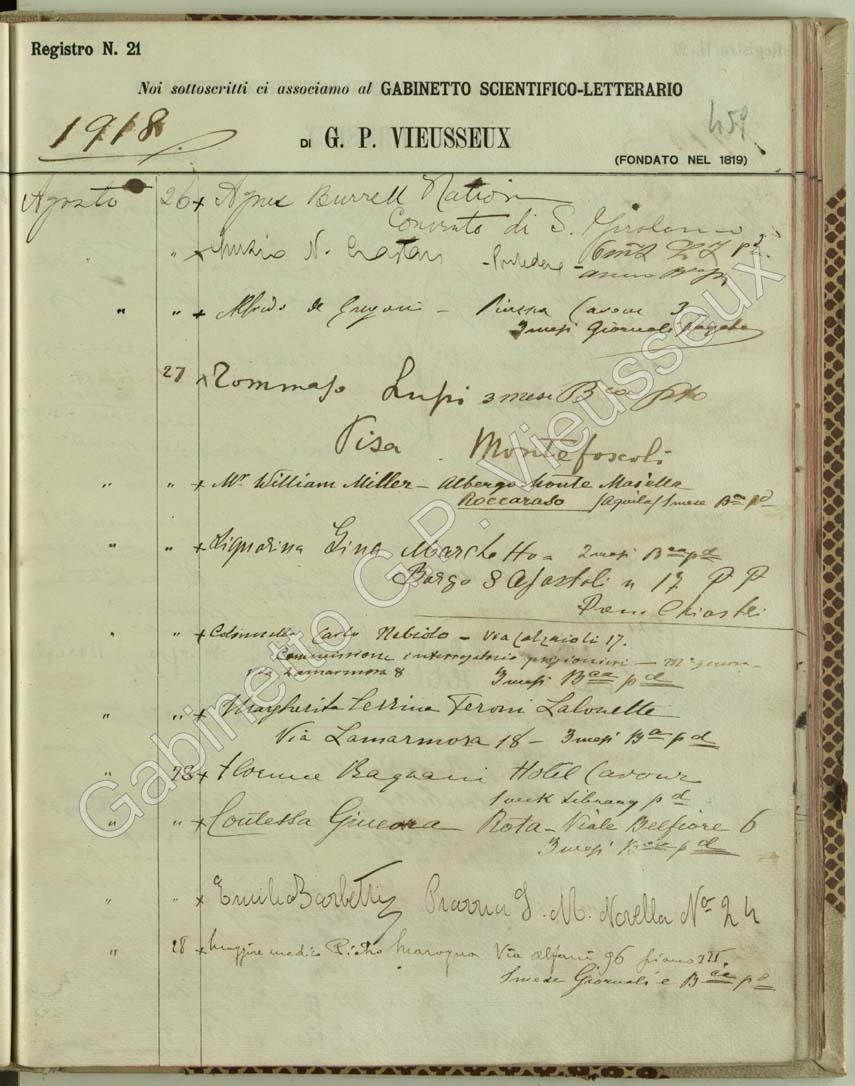 Registro N. 21
Noi sottoscritti ci associamo al GABINETTO SCIENTIFICO-LETTERARIO
1918
459
DI G. P. VIEUSSEUX
(FONDATO NEL 1819)
Agosto 26 x Agnes Burrell
Convento di S. Girolamo
" x N.
" " x Alfredo de Gregori - Piazza Cavour 3
3 mesi Giornali pagato
27 x Tommaso Lupi 3 mesi Bca pto
Pisa . Montefoscoli
" " x Mr. William Miller - Albergo Monte Maiella
Roccaraso (Aquila) 1 mese Bca pd
" " x Signorina Gina Marchetto - 2 mesi Bca pd
Borgo S Apostoli n 17 p p
" " x Colonnello Carlo Nebiolo - Via Calzaioli 17.
Commissione interrogatorio prigionieri -
Via Lamarmora 8 3 mesi Bca pd
" " x Margherita Feroni
Via Lamarmora 18 - 3 mesi Bca pd
" 28 x Florence Bagnani Hotel Cavour
1 week Library pd
" " x Contessa Ginevra Rota - Viale Belfiore 6
3 mesi Bca pd
" " x Emilio Barbetti Piazza S. M. Novella No 24
" 28 x Maggiore medico Pietro Via Alfani 96 piano III
1 mese Giornali e Bca pd
Gabinetto G.P. Vieusseux